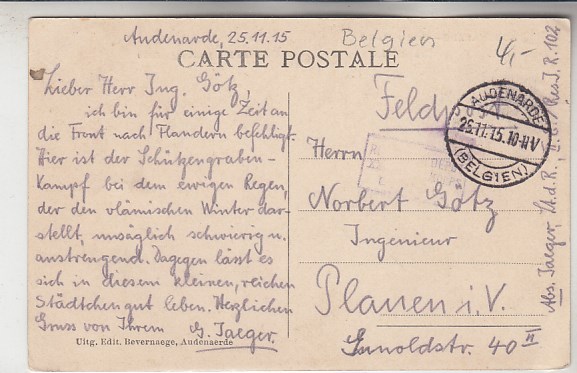 Audenarde, 25.11.15
Belgien
4,-
CARTE POSTALE
Lieber Herr Ing. Götz,
ich bin für einige Zeit an
die Front nach Flandern befehligt.
Hier ist der Schützengraben-
Kampf bei dem ewigen Regen,
der den vlämischen Winter dar-
stellt, unsäglich schwierig u.
anstrengend. Dagegen lässt es
sich in diesem kleinen, reichen
Städtchen gut leben. Herzlichen
Gruss von Ihrem G. Jaeger.
Uitg. Edit. Bevernaege, Audenaerde
AUDENARDE
25.11.15.10-11V
(BELGIEN)
Herrn
Norbert Götz
Ingenieur
Plauen i. V.
40 II
Abs. Jaeger, Lt. d. R., Res. J. R. 102